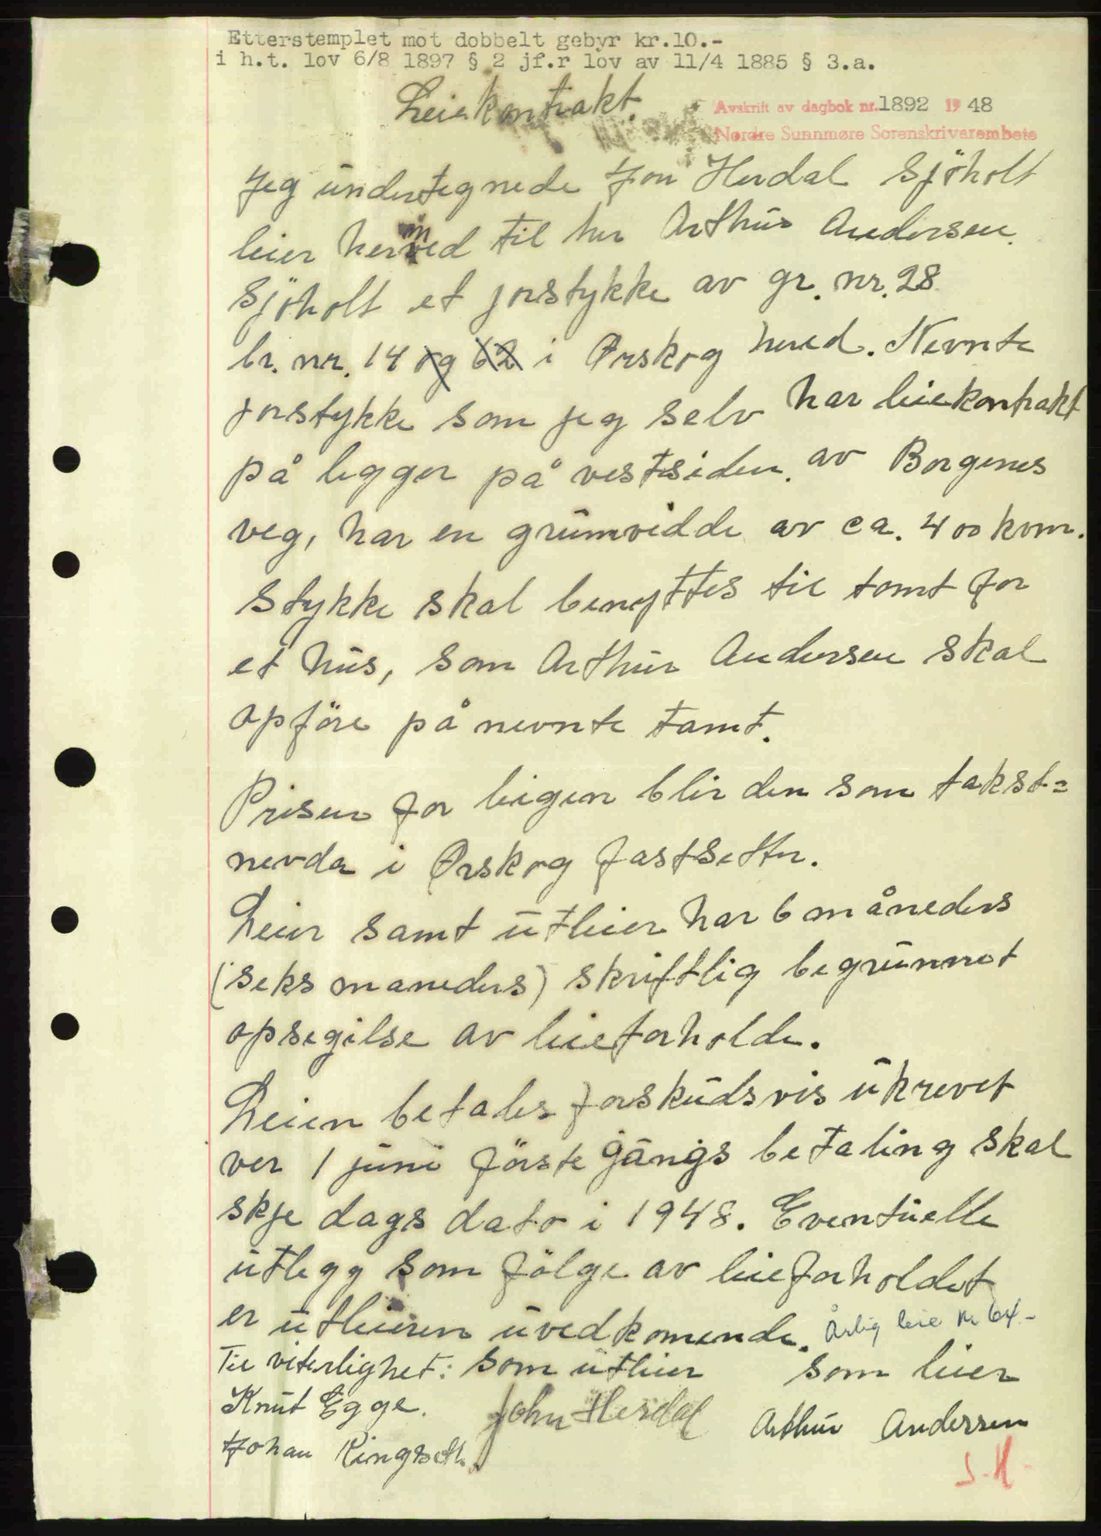 Etterstemplet mot dobbelt gebyr kr.10.-
i h.t. lov 6/8 1897 § 2 jf.r lov av 11/4 1885 § 3.a.
Leiekontrakt.
Avskrift av dagbok nr. 1892 1948
Nordre Sunnmøre Sorenskriverembete
Jeg undertegnede Jon Herdal Sjöholt
leier herved til hr Arthur Andersen.
Sjöholt et jorstykke av gr. nr. 28
br. nr. 14 og 62 i Ørskog hered. Nevnte
jorstykke som jeg selv har leiekontrakt
på ligger på vestsiden av Borgenes
veg, har en grunvidde av ca. 400 kvm.
Stykke skal benyttes til tomt for
et hus, som Arthur Andersen skal
opföre på nevnte tomt.
Prisen for leigen blir den som takst=
nevda i Ørskog fastsetter.
Leier samt utleier har 6 måneders
(seks maneders) skriftlig begrunnet
opsegilse av leieforholde.
Leien betales forskudsvis ukrevet
ver 1 juni förste gangs betaling skal
skje dags dato i 1948. Eventuelle
utlegg som fölge av leieforholdet
er utleieren uvedkomende. Årlig leie kr 64.-
Til viterlighet: Som utleier som leier
Knut Egge. John Herdal Arthur Andersen
Johan Ringseth.